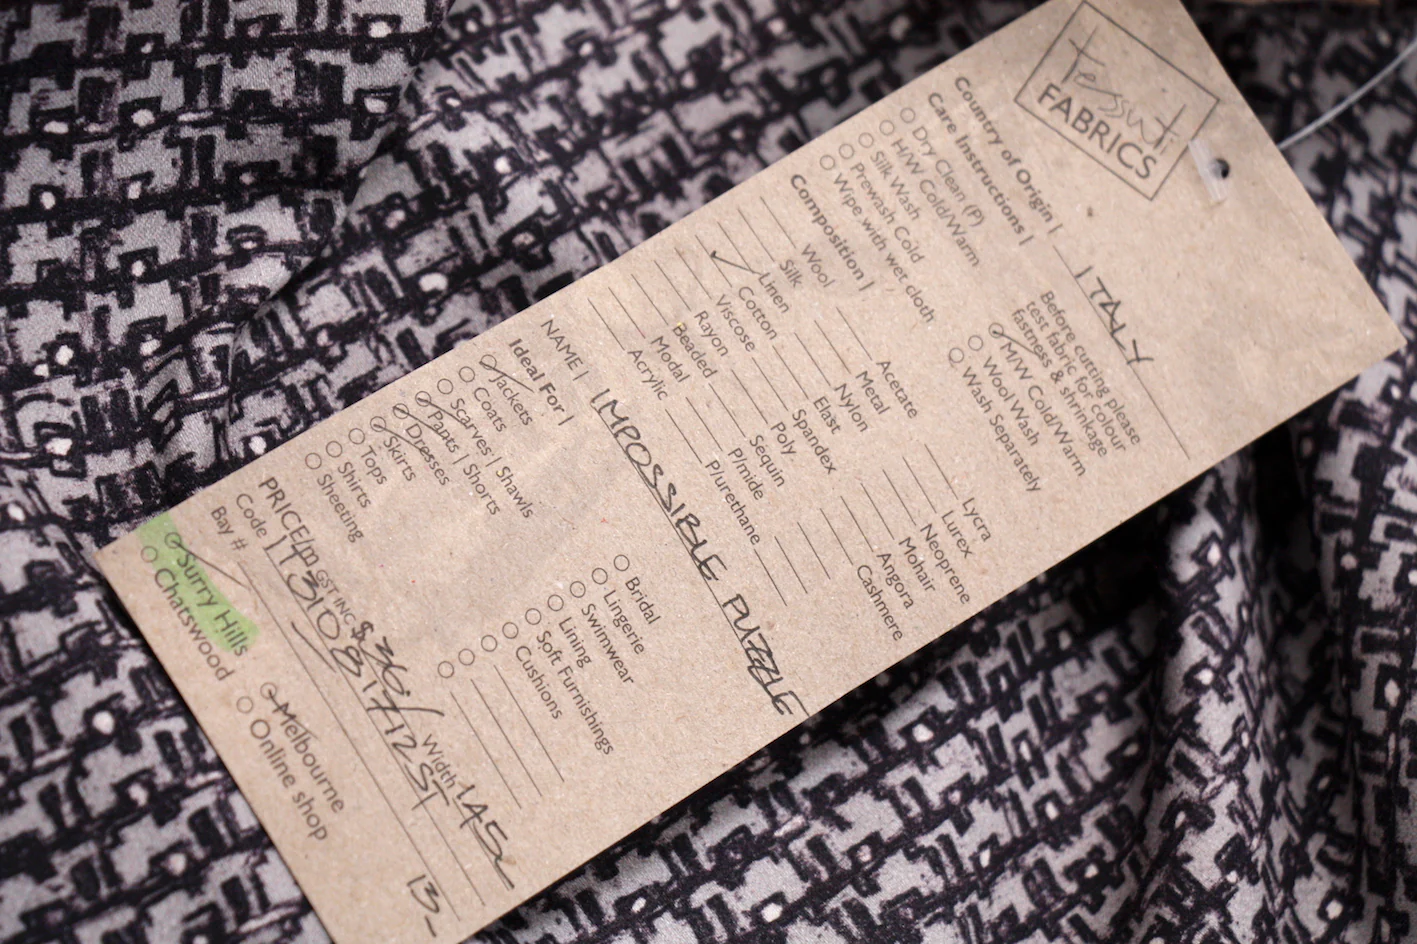 Tessuti
FABRICS
Country of Origin | ITALY
Care Instructions |
Before cutting please
test fabric for colour
fastness & shrinkage
Dry Clean (P)
H/W Cold/Warm
Silk Wash
Prewash Cold
Wipe with wet cloth
M/W Cold/Warm
Wool Wash
Wash Separately
Composition |
Wool
Silk
Linen
✓ Cotton
Viscose
Rayon
Beaded
Modal
Acrylic
Acetate
Metal
Nylon
Elast
Spandex
Poly
Sequin
P/mide
P/urethane
Lycra
Lurex
Neoprene
Mohair
Angora
Cashmere
NAME | IMPOSSIBLE PUZZLE
Ideal For |
Jackets
Coats
Scarves | Shawls
Pants | Shorts
Dresses
Skirts
Tops
Shirts
Sheeting
Bridal
Lingerie
Swimwear
Lining
Soft Furnishings
Cushions
PRICE/m GST INC $36 Width 145
Code
Bay # 13
Surry Hills
Chatswood
Melbourne
Online shop